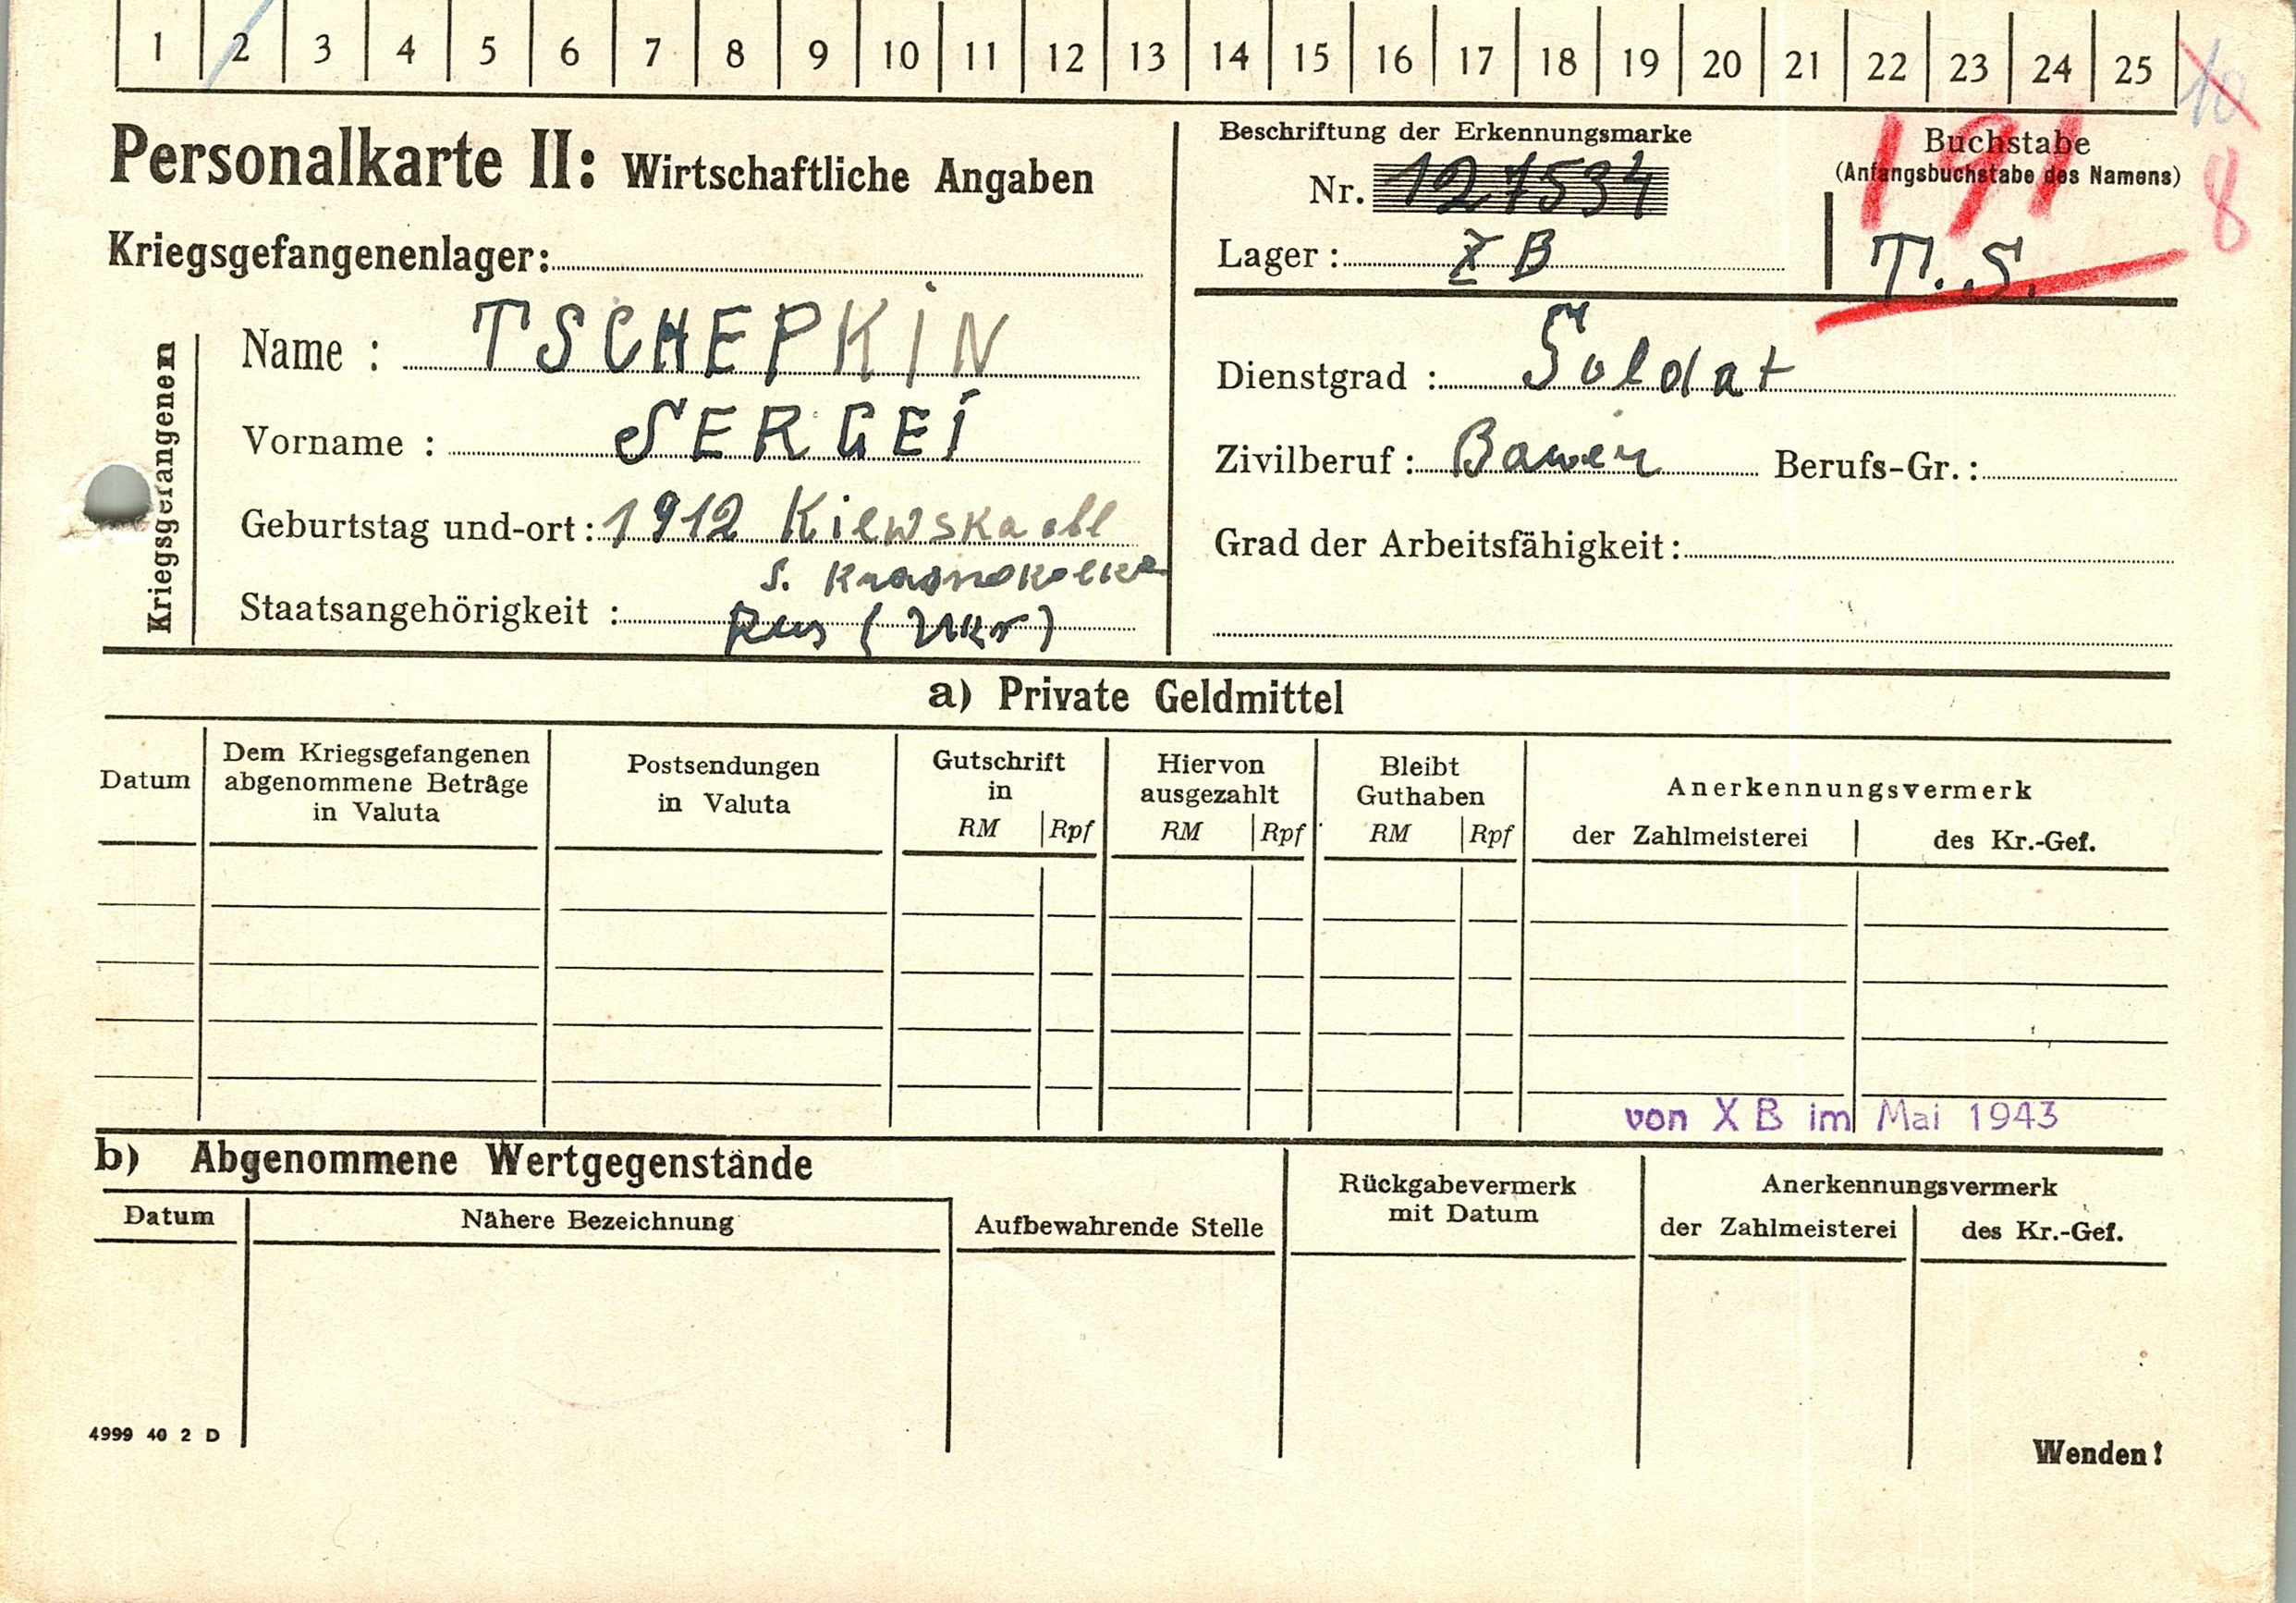 1 2 3 4 5 6 7 8 9 10 11 12 13 14 15 16 17 18 19 20 21 22 23 24 25 10
Personalkarte II: Wirtschaftliche Angaben
Kriegsgefangenenlager:
Beschriftung der Erkennungsmarke
Nr. 127534
Lager: X B
Buchstabe
(Anfangsbuchstabe des Namens)
191
8
T.S.
Kriegsgefangenen
Name : TSCHEPKIN
Vorname : SERGEI
Geburtstag und-ort: 1912 Kiewska obl
s.
Staatsangehörigkeit : Rus (Ukr)
Dienstgrad : Soldat
Zivilberuf : Bauer Berufs-Gr.:
Grad der Arbeitsfähigkeit:
a) Private Geldmittel
Datum
Dem Kriegsgefangenen
abgenommene Beträge
in Valuta
Postsendungen
in Valuta
Gutschrift
in
RM Rpf
Hiervon
ausgezahlt
RM Rpf
Bleibt
Guthaben
RM Rpf
Anerkennungsvermerk
der Zahlmeisterei des Kr.-Gef.
von X B im Mai 1943
b) Abgenommene Wertgegenstände
Datum
Nähere Bezeichnung
Aufbewahrende Stelle
Rückgabevermerk
mit Datum
Anerkennungsvermerk
der Zahlmeisterei des Kr.-Gef.
4999 40 2 D
Wenden!